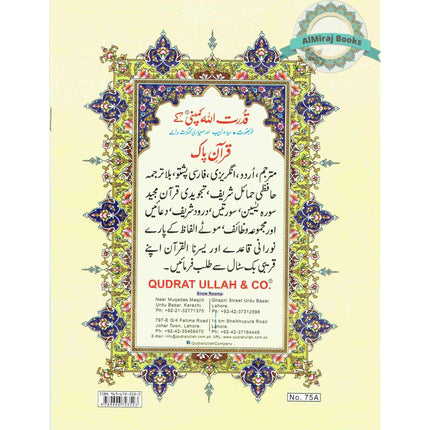 AlMiraj Books
قدرت اللہ کمپنی® کے
خوبصورت • دیدہ زیب اور معیاری
قرآن پاک
مترجم، اُردو، انگریزی، فارسی پشتو، بلا ترجمہ
حافظی حمائل شریف، تجویدی قرآن مجید
سورہ یٰسین، سورتیں، درود شریف، دعائیں
اور مجموعہ وظائف، موٹے الفاظ کے پارے
نورانی قاعدے اور یسرنا القرآن اپنے
قریبی بک سٹال سے طلب فرمائیں۔
QUDRAT ULLAH & CO.®
Show Rooms:
Near Muqadas Masjid Urdu Bazar, Karachi. Ph: +92-21-32771375
Ghazni Street Urdu Bazar Lahore. Ph: +92-42-37312598
797-E G/4 Fatima Road Johar Town, Lahore. Ph: +92-42-35468470
km Sheikhupura Road Lahore. Ph: +92-42-37164448
E-Mail: info@qudratullah.com.pk URL: www.qudratullah.com.pk
QudratullahCompany
No. 75A